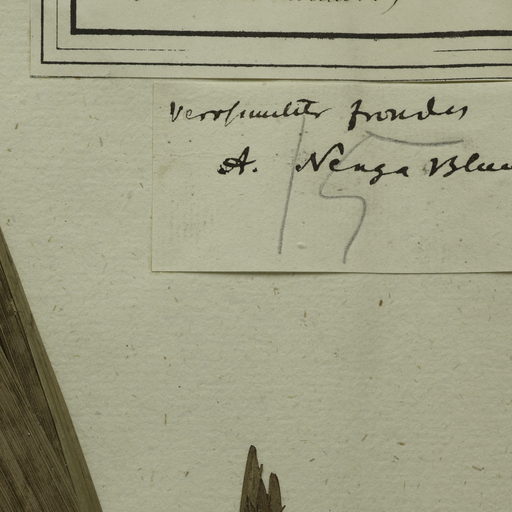 Verosimiliter frondes
A. Nenga Blu
15